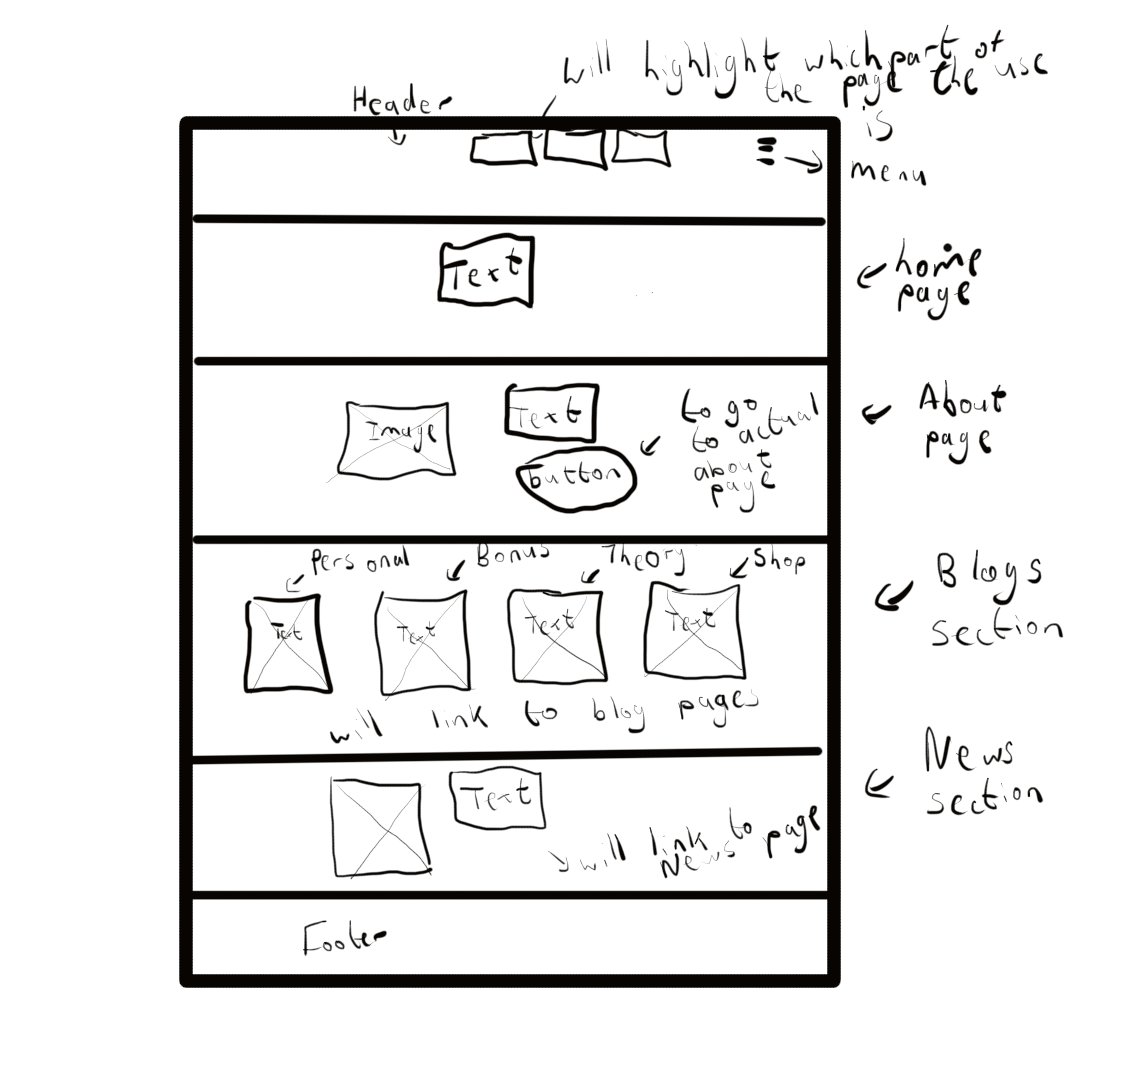 will highlight which part of
the page the use
is
Header
menu
Text
home
page
Image
Text
button
to go
to actual
about
page
About
page
Personal
Bonus
Theory
Shop
Text
Text
Text
Text
will link to blog pages
Blogs
section
Text
will link to
News page
News
section
Footer